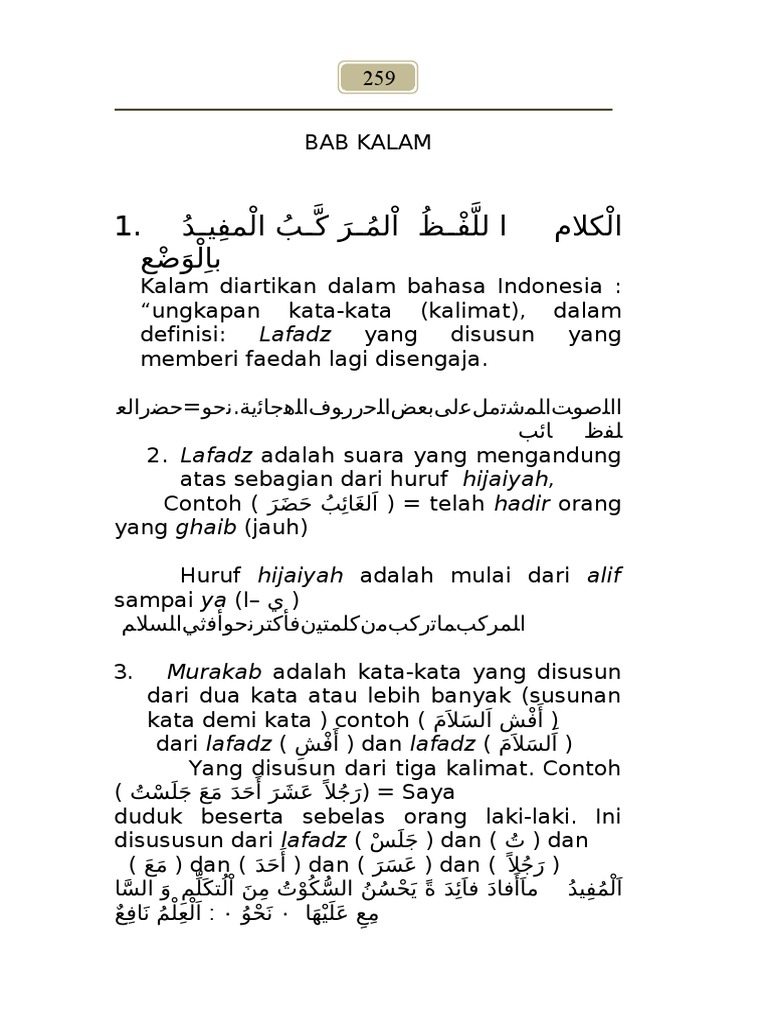 259
BAB KALAM
1. الْكلام ا للَّفْـظُ اْلمُـرَ كَّـبُ الْمفِيـدُ
بِاْلوَضْع
Kalam diartikan dalam bahasa Indonesia :
“ungkapan kata-kata (kalimat), dalam
definisi: Lafadz yang disusun yang
memberi faedah lagi disengaja.
االصوت المشتمل على بعض الحرروف الهجائية. نحو=حضر الغ
لفظ ائب
2. Lafadz adalah suara yang mengandung
atas sebagian dari huruf hijaiyah,
Contoh ( اَلغَائِبُ حَضَرَ ) = telah hadir orang
yang ghaib (jauh)
Huruf hijaiyah adalah mulai dari alif
sampai ya (ا– ي )
المركب ماتركب من كلمتين فأكتر نحو أفثي السلام
3. Murakab adalah kata-kata yang disusun
dari dua kata atau lebih banyak (susunan
kata demi kata ) contoh ( أَفْشِ اَلسَلاَمَ )
dari lafadz ( أَفْشِ ) dan lafadz ( اَلسَلاَمَ )
Yang disusun dari tiga kalimat. Contoh
( رَجُلاً عَشَرَ أَحَدَ مَعَ جَلَسْتُ ) = Saya
duduk beserta sebelas orang laki-laki. Ini
disususun dari lafadz ( جَلَسْ ) dan ( تُ ) dan
( مَعَ ) dan ( أَحَدَ ) dan ( عَسَرَ ) dan ( رَجُلاً )
اَلْمُفِيدُ ماَأَفادَ فاَئِدَ ةً يَحْسُنُ السُّكُوْتُ مِنَ اْلُتكَلِّمِ وَ السَّا
مِعِ عَلَيْهَا ٠ نَحْوُ ٠ : اَلْعِلْمُ نَافِعٌ